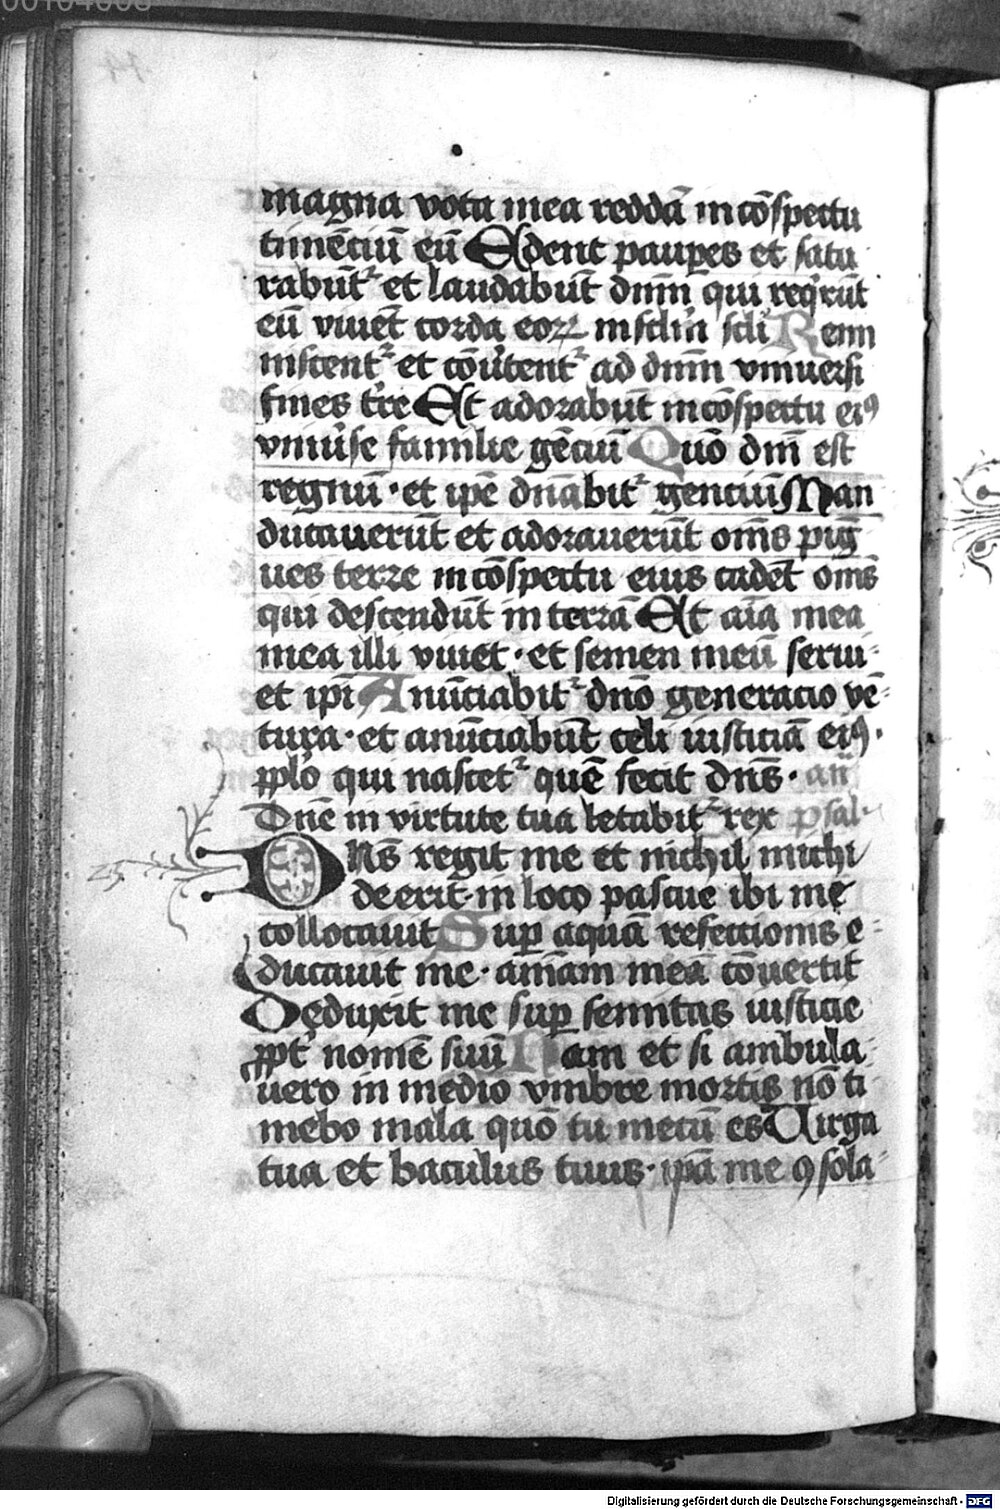 00104008
magna vota mea reddā in cōspectu
timēciū eū Edent paupes et satu
rabūt᷑ et laudabūt dnm̄ qui reqͥrūt
eū viuēt corda eoꝝ in sclm̄ scli Remi
niscent᷑ et cōu͛tent᷑ ad dnm̄ vniuersi
fines tr̄e Et adorabūt in cōspectu eiꝰ
vniu͛se familie gēciū Quō dm̄ est
regnū · et ip̄e dn̄abit᷑ genciū Man
ducauerūt et adorauerūt om̄s piḡ
ues terre in cōspectu eius cadēt om̄s
qui descendūt in terrā Et aīa mea
mea illi viuet · et semen meū serui-
et ipī Anūciabit᷑ dn̄o generacio vē-
tura · et anūciabūt celi iusticiā eiꝰ ·
pplo qui nascet᷑ quē fecit dn̄s · an̄
Dn̄e in virtute tua letabit᷑ rex psal-
Dn̄s regit me et nichil michi
deerit · in loco pascue ibi me
collocauit Sup aquā refectionis e-
ducauit me · animam meā cōuertit
Deduxit me sup semitas iusticie
ꝓpt͛ nomē suū Nam et si ambula-
uero in medio vmbre mortis nō ti
mebo mala quō tu mecū es Uirga
tua et baculus tuus · ip̄a me ꝯsola-
Digitalisierung gefördert durch die Deutsche Forschungsgemeinschaft - DFG